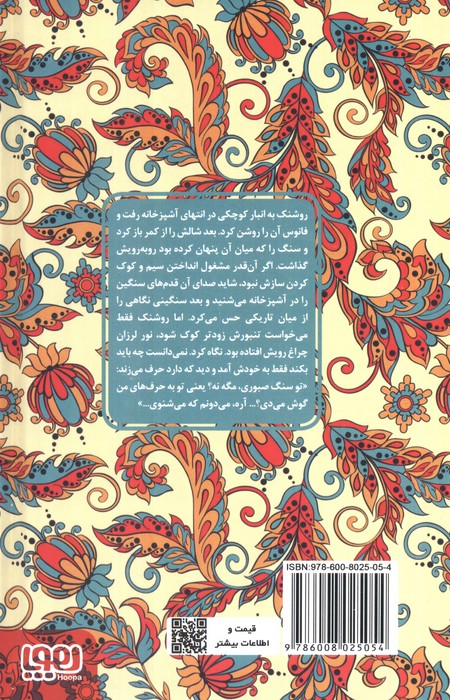 روشنک به انبار کوچکی در انتهای آشپزخانه رفت و
فانوس آن را روشن کرد. بعد شالش را از کمر باز کرد
و سنگ را که میان آن پنهان کرده بود روبه‌رویش
گذاشت. اگر آن‌قدر مشغول انداختن سیم و کوک
کردن سازش نبود، شاید صدای آن قدم‌های سنگین
را در آشپزخانه می‌شنید و بعد سنگینی نگاهی را
از میان تاریکی حس می‌کرد. اما روشنک فقط
می‌خواست تنبورش زودتر کوک شود، نور لرزان
چراغ رویش افتاده بود. نگاه کرد. نمی‌دانست چه باید
بکند فقط به خودش آمد و دید که دارد حرف می‌زند:
«تو سنگ صبوری، مگه نه؟ یعنی تو به حرف‌های من
گوش می‌دی؟... آره، می‌دونم که می‌شنوی...»
ISBN:978-600-8025-05-4
9 786008 025054
قیمت و
اطلاعات بیشتر
هوپا
Hoopa